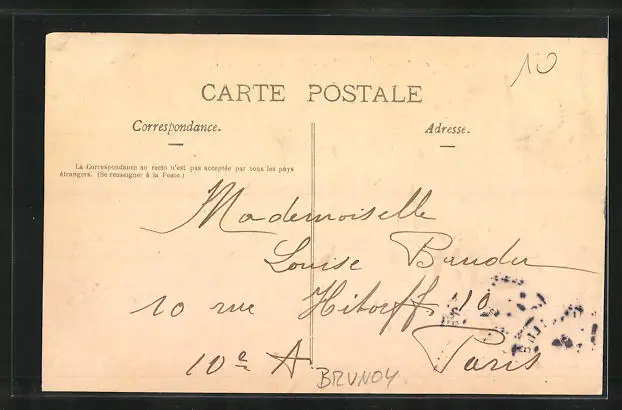 10
CARTE POSTALE
Correspondance.
Adresse.
La Correspondance au recto n'est pas acceptée par tous les pays
étrangers. (Se renseigner à la Poste.)
Mademoiselle
Louise
10 rue Hitorff 10
10e A Paris
BRUNOY